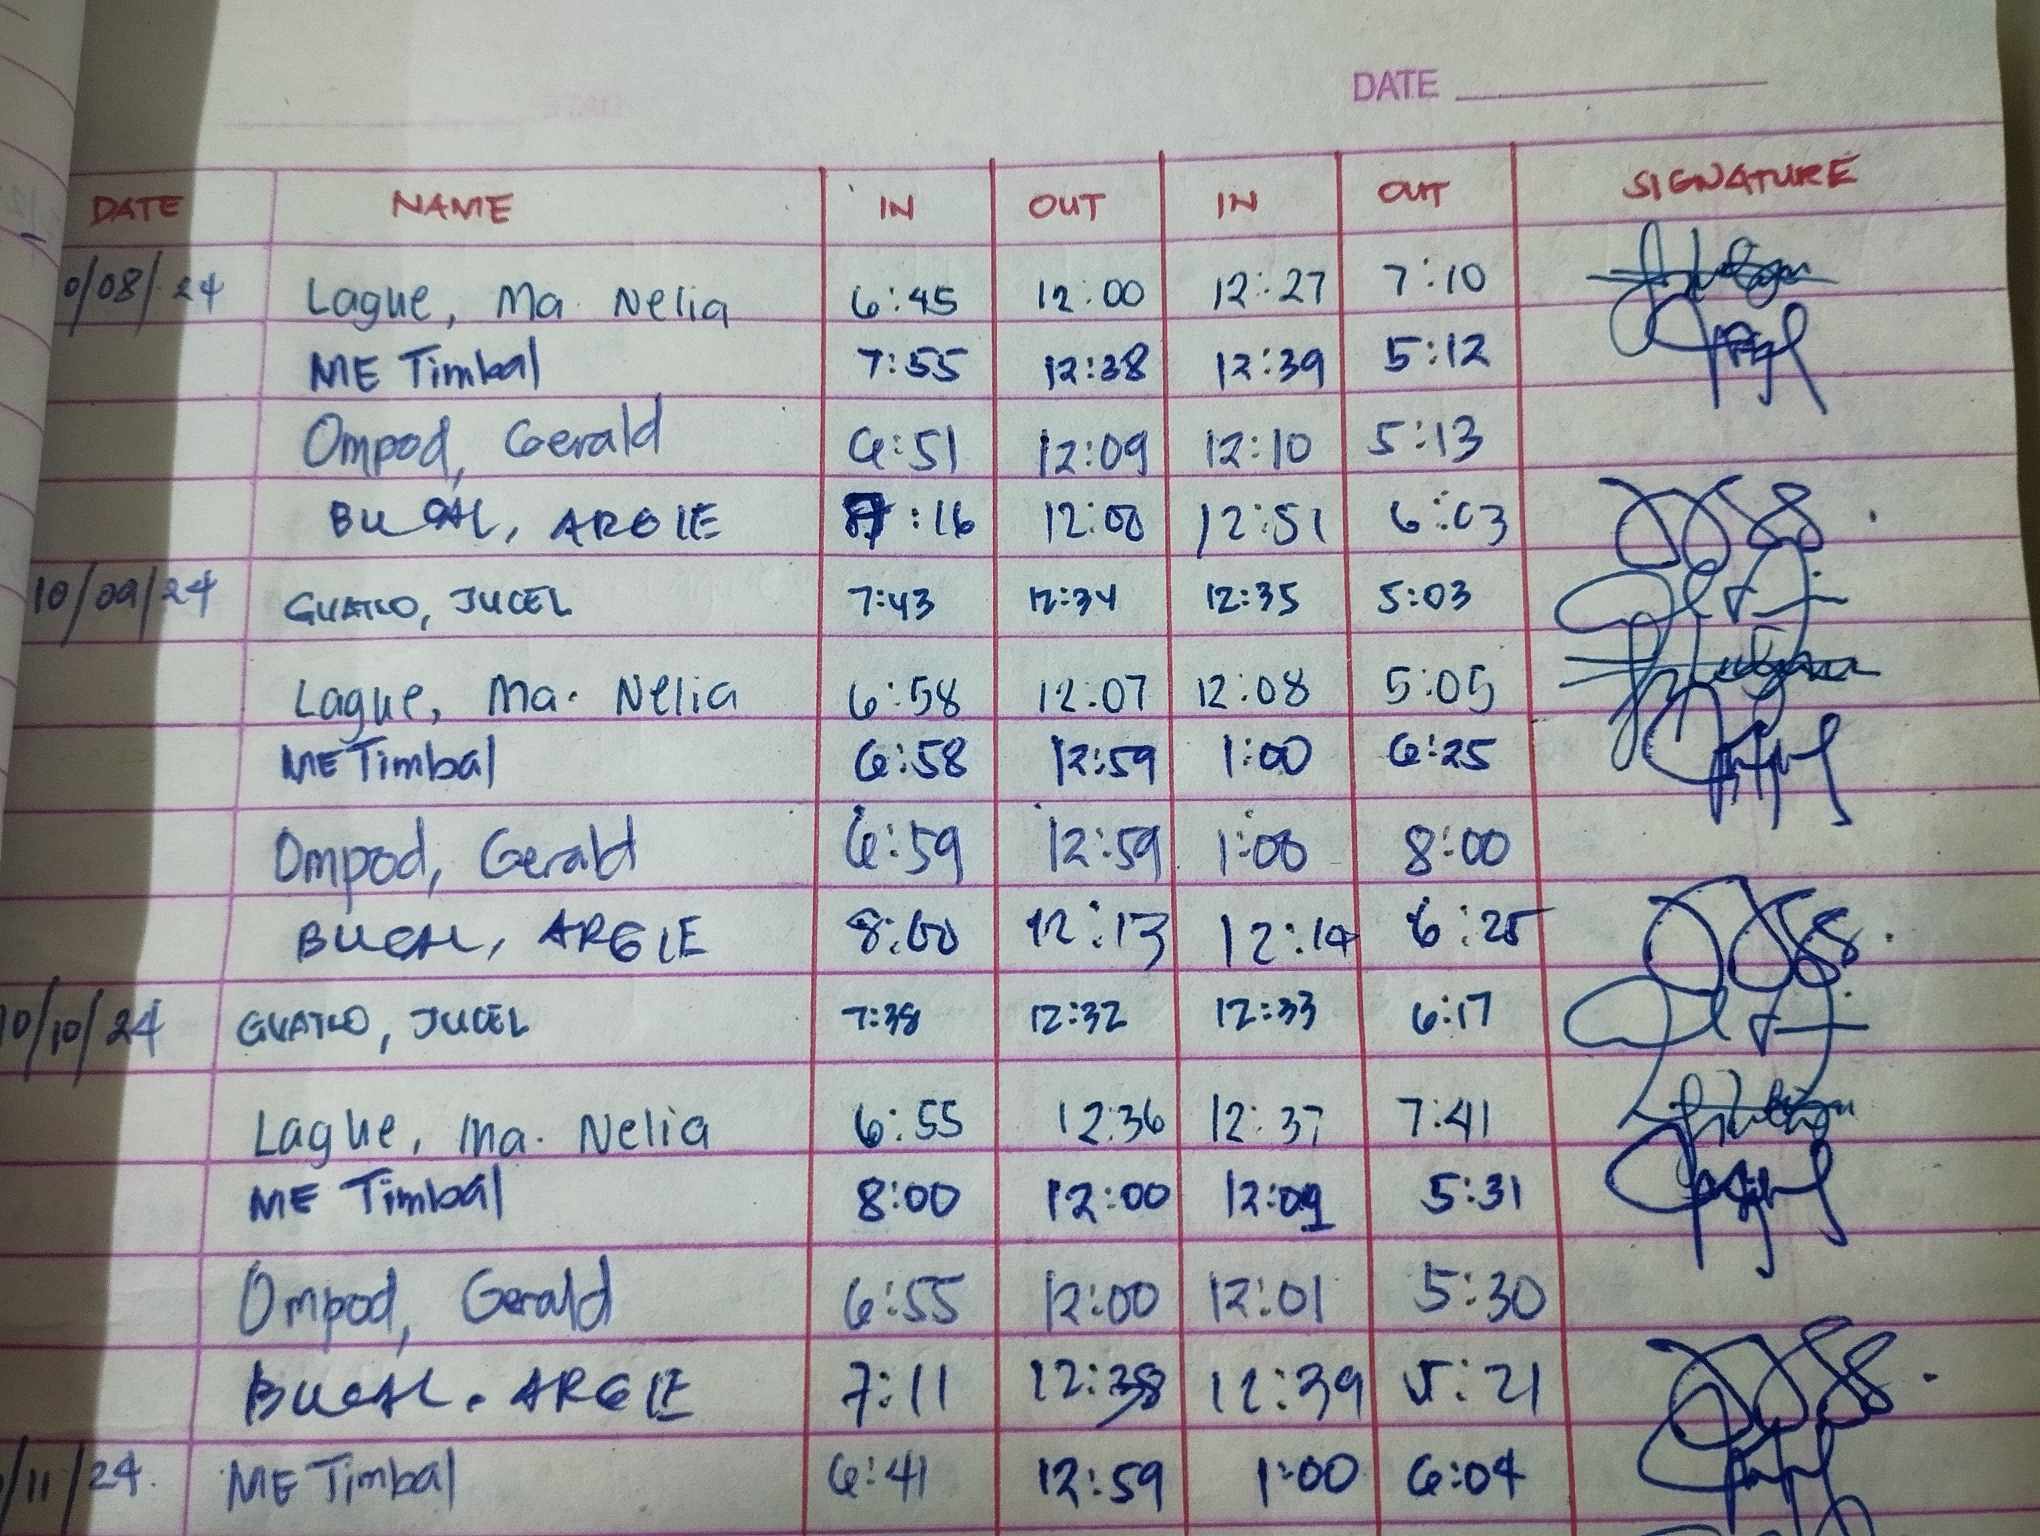 DATE
DATE NAME IN OUT IN OUT SIGNATURE
0/08/24 Lague, Ma. Nelia 6:45 12:00 12:27 7:10
ME Timbal 7:55 12:38 12:39 5:12
Ompod, Gerald 6:51 12:09 12:10 5:13
BUCAL, ARGIE :16 12:00 12:51 6:03
10/09/24 GUATLO, JUCEL 7:43 12:34 12:35 5:03
Lague, Ma. Nelia 6:58 12:07 12:08 5:05
ME Timbal 6:58 12:59 1:00 6:25
Ompod, Gerald 6:59 12:59 1:00 8:00
BUCAL, ARGIE 8:00 12:13 12:14 6:25
10/10/24 GUATLO, JUCEL 7:38 12:32 12:33 6:17
Lague, Ma. Nelia 6:55 12:36 12:37 7:41
ME Timbal 8:00 12:00 12:01 5:31
Ompod, Gerald 6:55 12:00 12:01 5:30
BUCAL, ARGIE 7:11 12:38 12:39 5:21
/11/24. ME Timbal 6:41 12:59 1:00 6:04